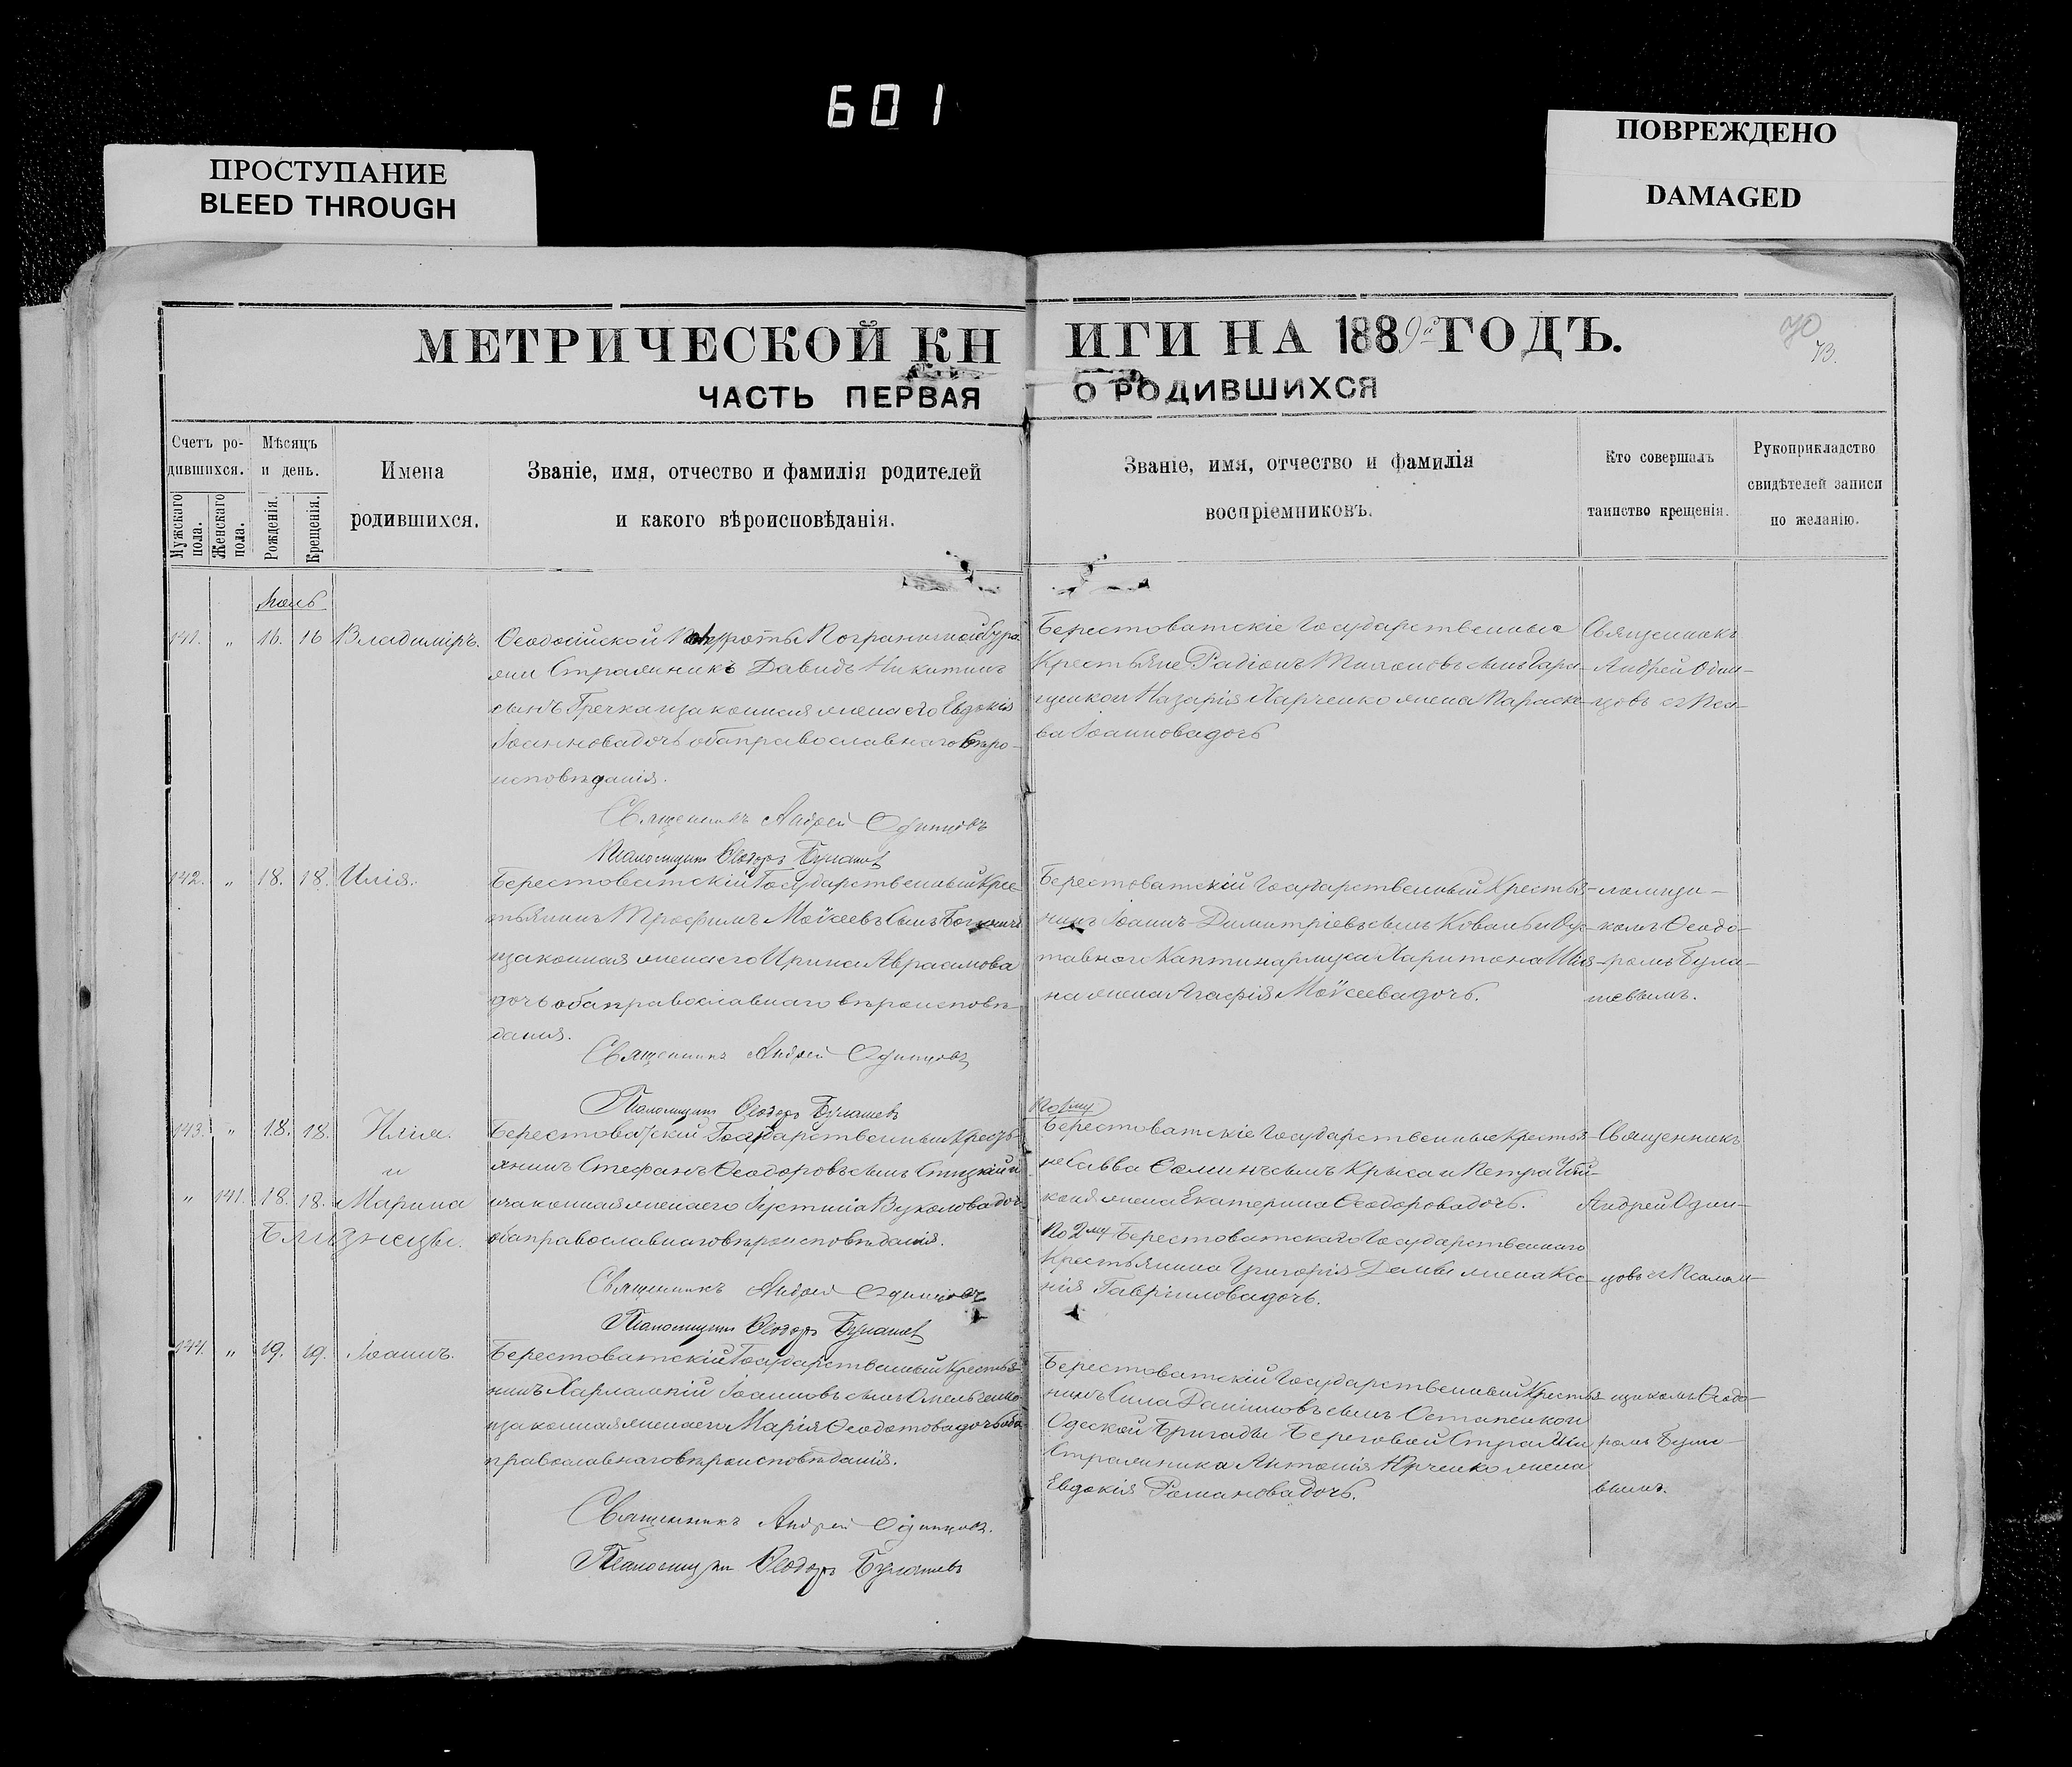 601
ПРОСТУПАНИЕ
BLEED THROUGH
ПОВРЕЖДЕНО
DAMAGED
МЕТРИЧЕСКОЙ КНИГИ НА 1889й ГОДЪ.
70
73.
ЧАСТЬ ПЕРВАЯ О РОДИВШИХСЯ
Счетъ ро-
дившихся.
Мужскаго пола.
Женскаго пола.
Мѣсяцъ
и день.
Рожденія.
Крещенія.
Имена
родившихся.
Званіе, имя, отчество и фамилія родителей
и какого вѣроисповѣданія.
Званіе, имя, отчество и фамилія
воспріемниковъ.
Кто совершалъ
таинство крещенія.
Рукоприкладство
свидѣтелей записи
по желанію.
141. „ 16. 16 Владиміръ.
Ѳеодосійской Пограничной
Стражникъ Давидъ Никитинъ
сынъ Гречка и законная жена его Евдокія
Іоаннова дочь оба православнаго вѣро-
исповѣданія.
Священникъ Андрей Одинцовъ
Псаломщикъ Ѳеодоръ Булашевъ
Берестоватскіе Государственные
Крестьяне Радіонъ сынъ
Назарія Харченко жена Параске-
ва Іоаннова дочь
Священникъ
Андрей Один-
цовъ съ Пса-
142. „ 18. 18. Илія.
Берестоватскій Государственный Кре-
стьянинъ Трофимъ Моѵсеевъ сынъ
и законная жена его Ирина Авраамова
дочь оба православнаго вѣроисповѣ-
данія.
Священникъ Андрей Одинцовъ
Псаломщикъ Ѳеодоръ Булашевъ
Берестоватскій Государственный Крестья-
нинъ Іоаннъ Димитріевъ сынъ Кова
Харитона
на жена Агафія Моѵсеева дочь.
ломщи-
комъ Ѳеодо-
ромъ Була-
шевымъ.
143. „ 18. 18. Илія.
и
„ 141. 18. 18. Марина
Близнецы.
Берестоватскій Государственный Кресть-
янинъ Стефанъ Ѳеодоровъ сынъ и
законная жена его Іустинія Вуколова дочь
оба православнаго вѣроисповѣданія.
Священникъ Андрей Одинцовъ
Псаломщикъ Ѳеодоръ Булашевъ
По 1му
Берестоватскіе Государственные Крестья-
не Савва сынъ Крыса и Петра
жена Екатерина Ѳеодорова дочь.
По 2му Берестоватскаго Государственнаго
Крестьянина Григорія жена Ксе-
нія Гавріилова дочь.
Священникъ
Андрей Один-
цовъ съ Псалом-
144. „ 19. 19. Іоаннъ.
Берестоватскій Государственный Крестья-
нинъ Харлампій Іоанновъ сынъ Омельченко
и законная жена его Марія Ѳеодотова дочь оба
православнаго вѣроисповѣданія.
Священникъ Андрей Одинцовъ.
Псаломщикъ Ѳеодоръ Булашевъ
Берестоватскій Государственный Крестья-
нинъ Сила Даніиловъ сынъ Остапенко и
Одеской Бригады Береговой Стражи
Стражника Антонія Юрченко жена
Евдокія Романова дочь.
щикомъ Ѳеодо-
ромъ
вымъ.